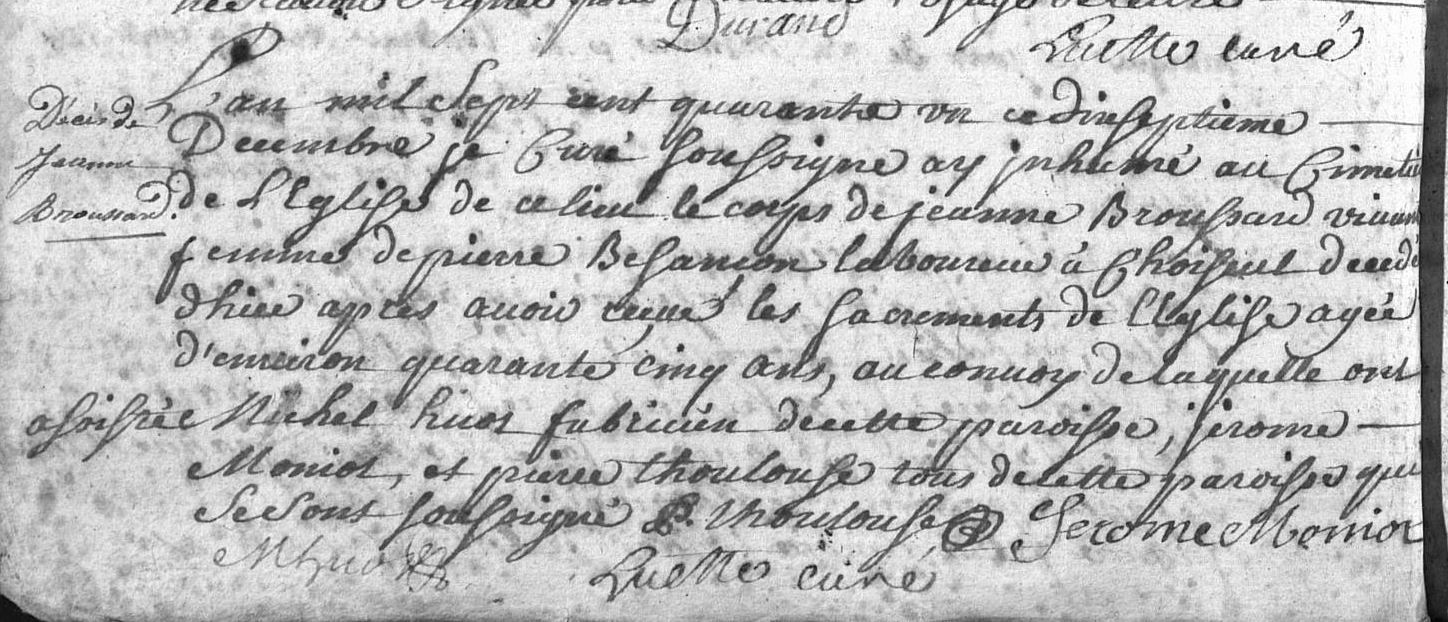 Durand
Luette curé
Décès de
Jeanne
Broussard.
L'an mil sept cent quarante un ce dixseptieme
Decembre je Curé soussigné ay jnhumé au Cimetié
de L'Eglise de ce lieu le corps de jeanne Broussard vivant
femme de pierre Besançon laboureur à Choiseul decedé
dhier apres avoir reçue les sacrements de l'Eglise agée
d'environ quarante cinq ans, au convoy de laquelle ont
assistée Michel huot fabricien de cette paroisse, jerome
Moniot, et pierre thoulouse tous de cette paroisse qui
se sont soussigné P. thoulouse Jerome Moniot
MHuot Luette curé